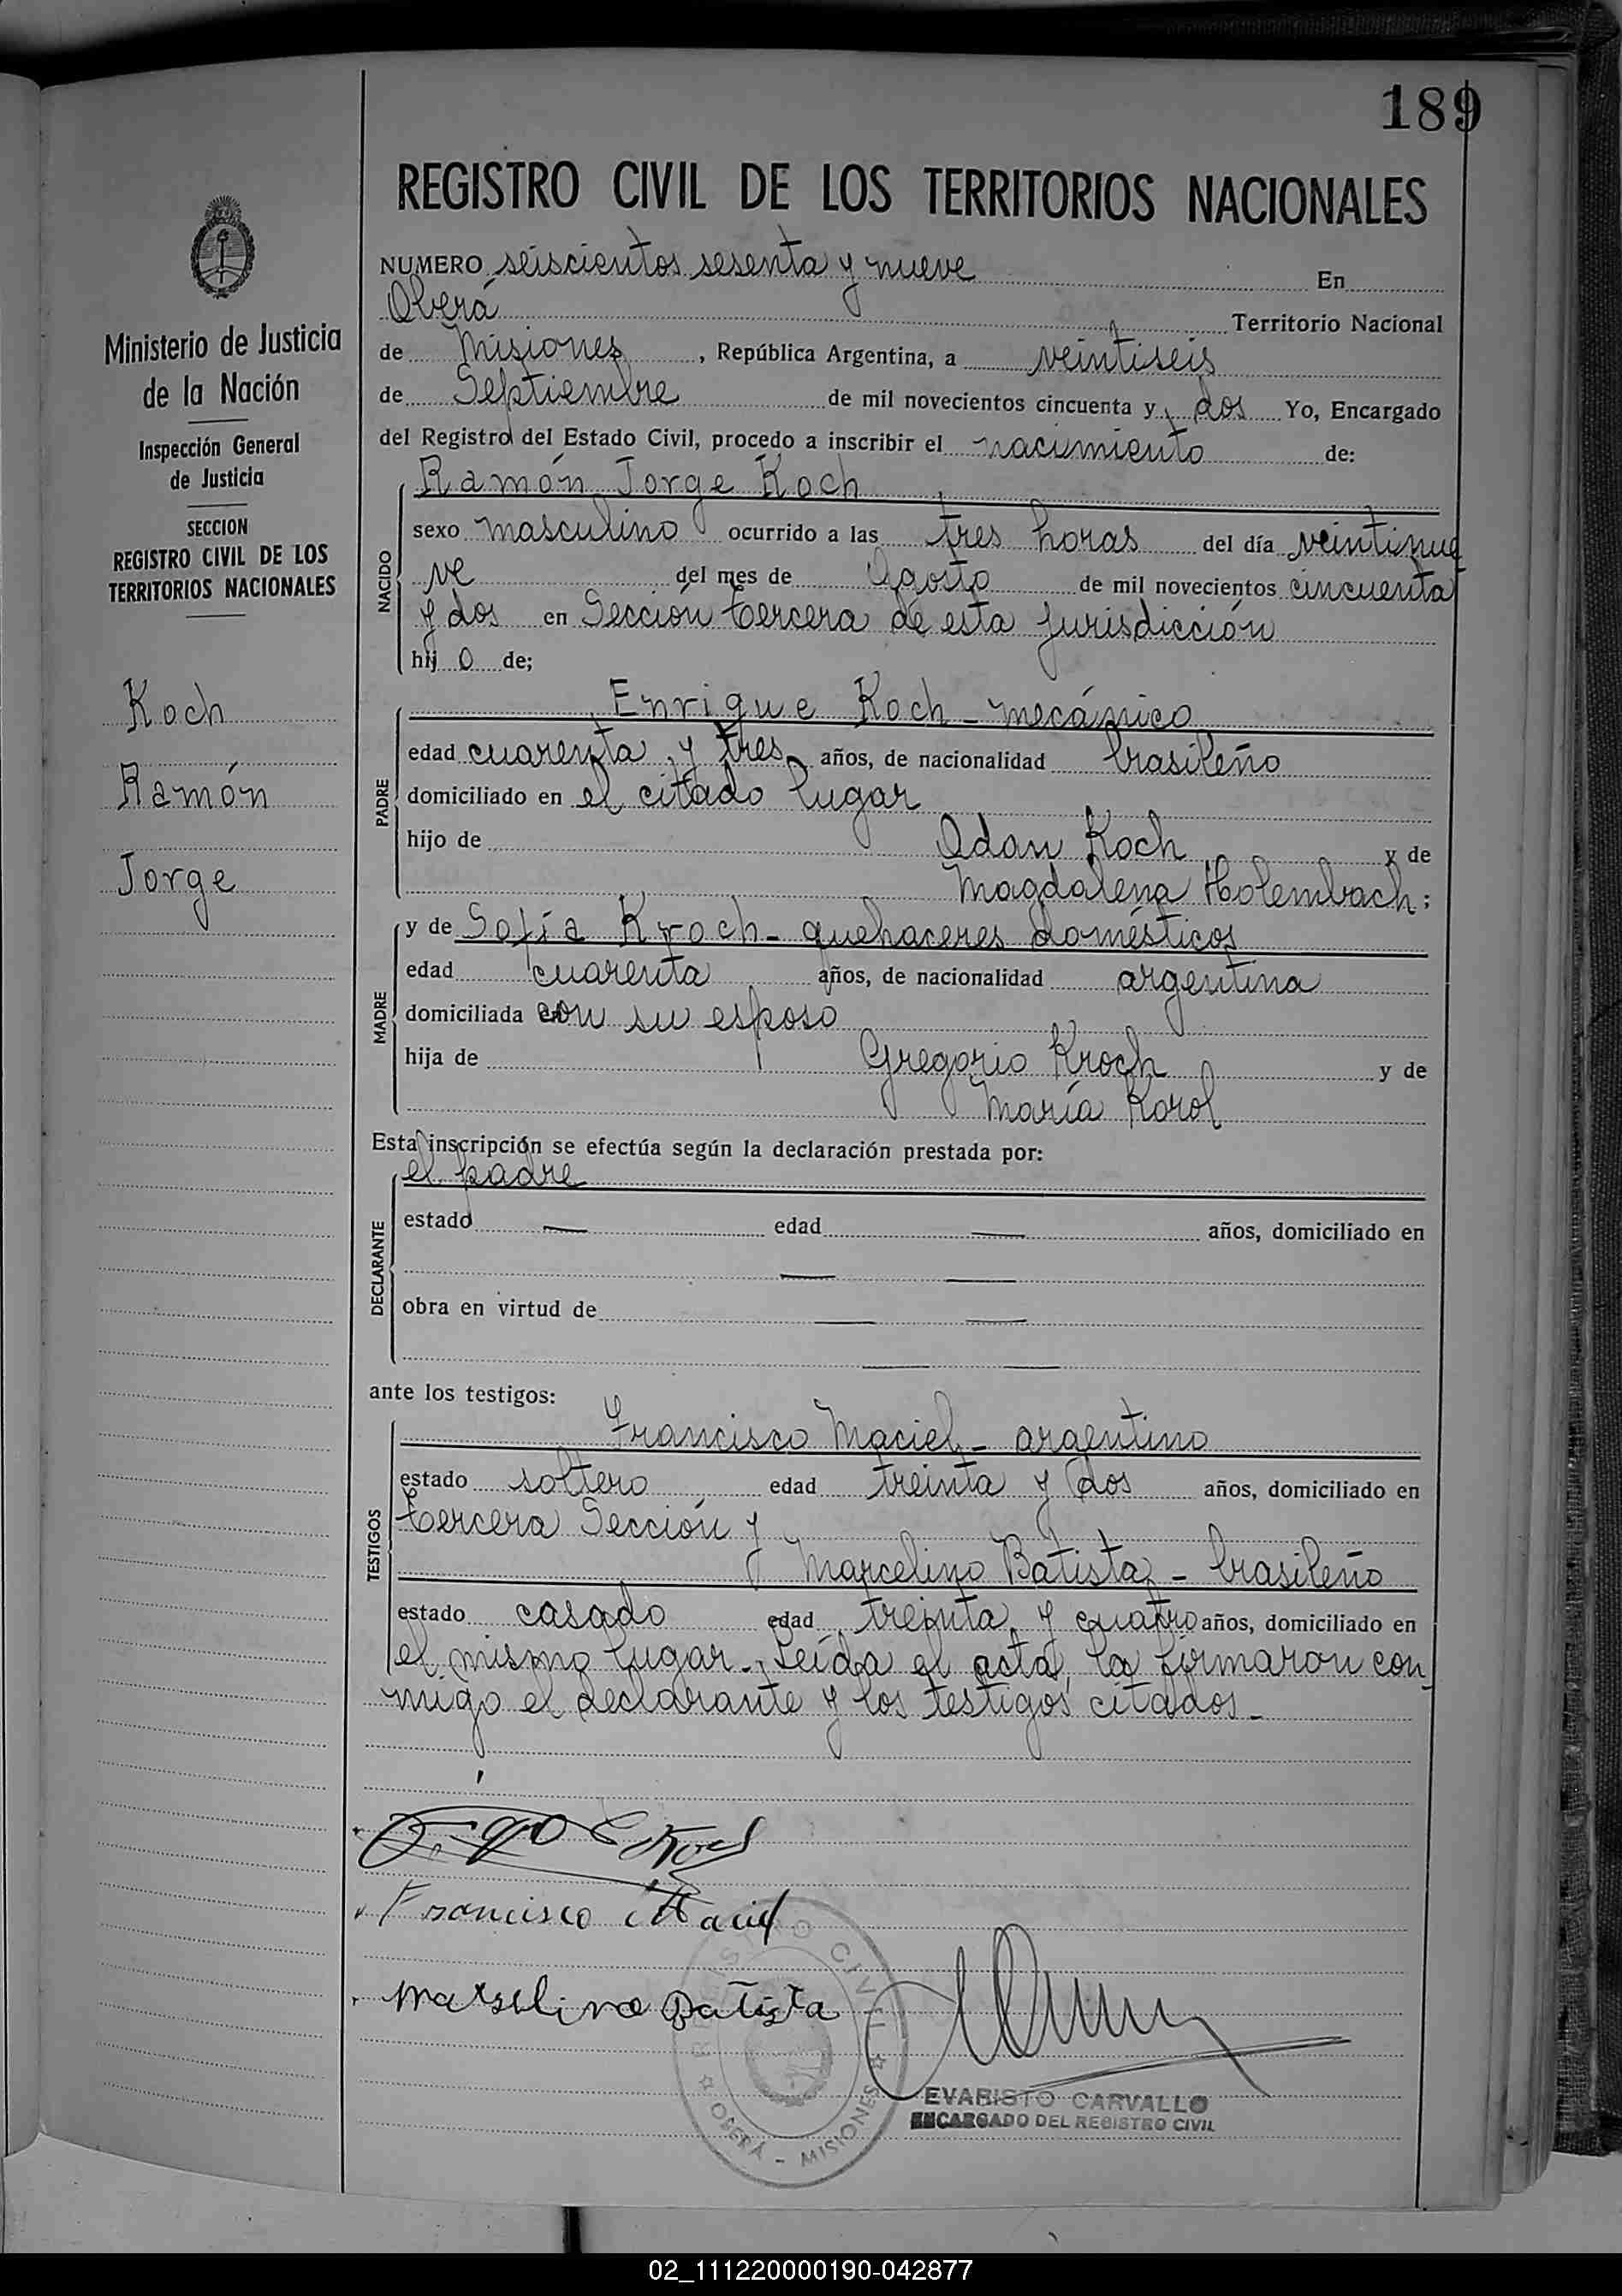 189
REGISTRO CIVIL DE LOS TERRITORIOS NACIONALES
Ministerio de Justicia
de la Nación
Inspección General
de Justicia
SECCION
REGISTRO CIVIL DE LOS
TERRITORIOS NACIONALES
Koch
Ramón
Jorge
NUMERO seiscientos sesenta y nueve En
Oberá Territorio Nacional
de Misiones, República Argentina, a veintiseis
de Septiembre de mil novecientos cincuenta y dos Yo, Encargado
del Registro del Estado Civil, procedo a inscribir el nacimiento de:
NACIDO
Ramón Jorge Koch
sexo masculino ocurrido a las tres horas del día veintinue
ve del mes de Agosto de mil novecientos cincuenta
y dos en Sección tercera de esta jurisdicción
hij o de;
PADRE
Enrique Koch - mecánico
edad cuarenta y tres años, de nacionalidad brasileño
domiciliado en el citado lugar
hijo de Adan Koch y de
Magdalena Holembach;
MADRE
y de Sofía Kroch - quehaceres domésticos
edad cuarenta años, de nacionalidad argentina
domiciliada con su esposo
hija de Gregorio Kroch y de
María Korol
Esta inscripción se efectúa según la declaración prestada por:
DECLARANTE
el padre
estado — edad — años, domiciliado en
— —
obra en virtud de — —
— —
ante los testigos:
TESTIGOS
Francisco Maciel - argentino
estado soltero edad treinta y dos años, domiciliado en
tercera Sección y
Marcelino Batista - brasileño
estado casado edad treinta y cuatro años, domiciliado en
el mismo lugar. Leída el acta, la firmaron con
migo el declarante y los testigos citados -
Koch
Francisco Maciel
Marselino Batista
REGISTRO CIVIL
OBERÁ - MISIONES
EVARISTO CARVALLO
ENCARGADO DEL REGISTRO CIVIL
02_111220000190-042877